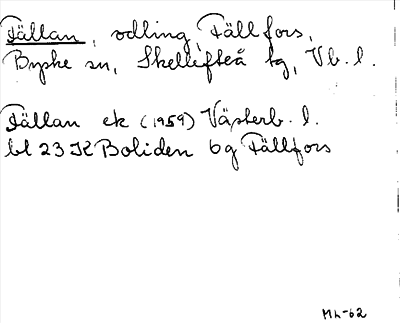 Fällan, odling Fällfors,
Byske sn, Skellefteå tg, Vb. l.
Fällan ek (1959) Västerb. l.
bl 23 K Boliden 6g Fällfors
ML-62